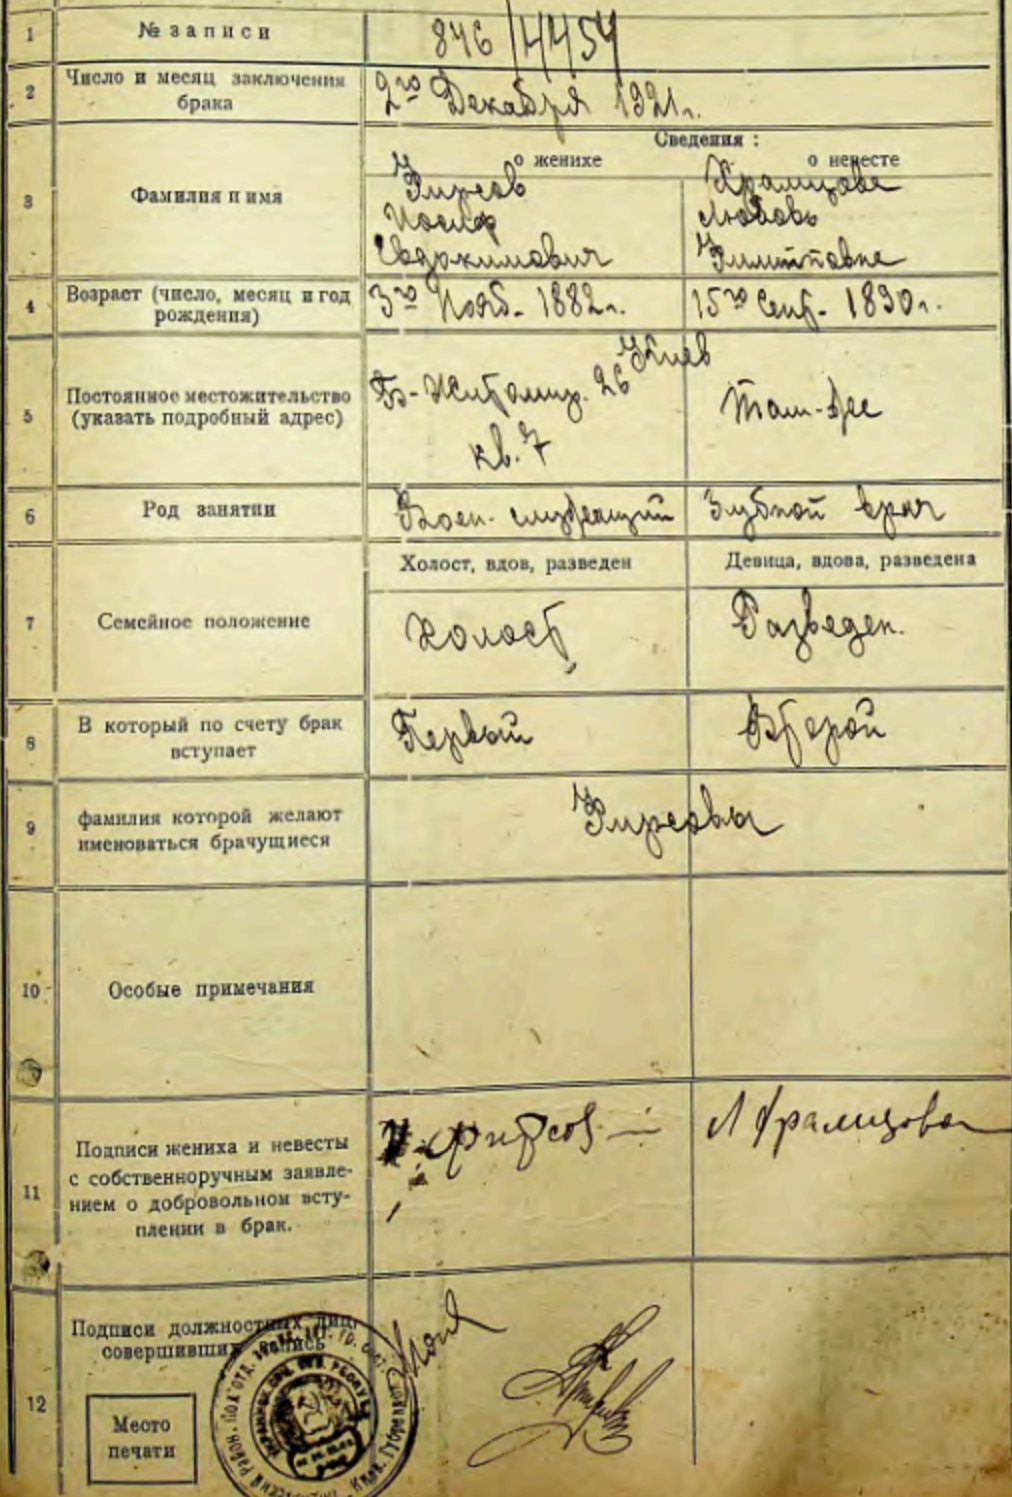 1 № записи 846/4454
2 Число и месяц заключения брака 2го Декабря 1921г.
Сведения :
о женихе о невесте
3 Фамилия и имя
Фирсов Храмцова
Иосиф Любовь
Евдокимович Филипповна
4 Возраст (число, месяц и год рождения) 3го Нояб. 1882г. 15го Сент. 1890г.
Киев
5 Постоянное местожительство (указать подробный адрес) Б-Житомир. 26 Там-же
кв. 7
6 Род занятии Воен. служащий Зубной врач
Холост, вдов, разведен Девица, вдова, разведена
7 Семейное положение Холост Разведен.
8 В который по счету брак вступает Первый Второй
9 фамилия которой желают именоваться брачущиеся Фирсовы
10 Особые примечания
11 Подписи жениха и невесты
с собственноручным заявле-
нием о добровольном всту-
плении в брак.
И. Фирсов Л Храмцова
12 Подписи должностных лиц,
совершивших запись
Место
печати